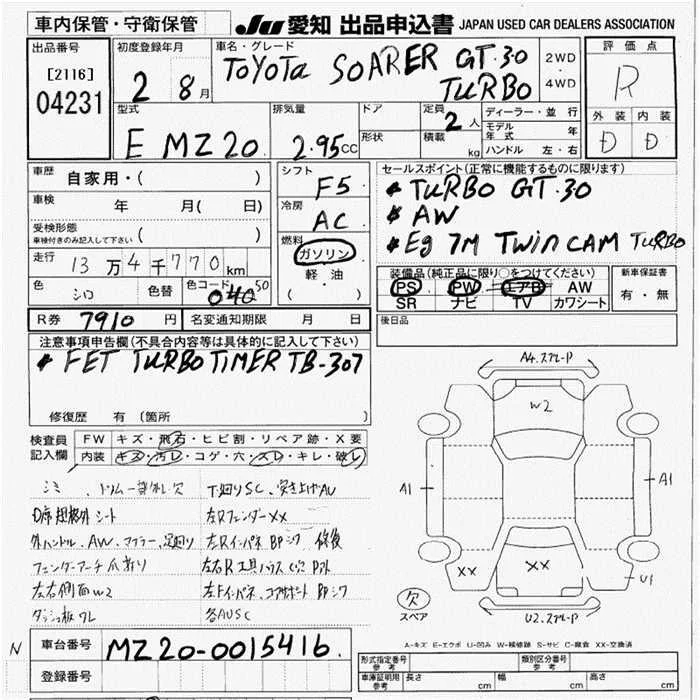 車内保管・守衛保管
JU 愛知 出品申込書 JAPAN USED CAR DEALERS ASSOCIATION
出品番号
[2116]
04231
初度登録年月
2 8月
車名・グレード
TOYOTA SOARER GT.30 TURBO
2WD
・
4WD
評価点
R
外装 内装
D D
型式
E MZ20
排気量
2.95cc
ドア
形状
定員 2人
積載 kg
ディーラー・並行
モデル年式 年
ハンドル 左・右
車歴 自家用・( )
車検 年 月( 日)
受検形態
車検付きのみ記入して下さい ( )
走行 13万4千770km
色 シロ 色替 色コード 040 50
シフト F5
冷房 AC
燃料 ガソリン
軽・油
( )
セールスポイント(正常に機能するものに限ります)
* TURBO GT.30
* AW
* Eg 7M TWIN CAM TURBO
装備品(純正品に限り○をつけてください)
PS PW エアB AW
SR ナビ TV カワシート
新車保証書
有・無
R券 7910円 名変通知期限 月 日
後日品
注意事項申告欄(不具合内容等は具体的に記入して下さい)
* FET TURBO TIMER TB-307
修復歴 有(箇所
検査員記入欄
FW キズ・飛石・ヒビ割・リペア跡・X要
内装 キズ・汚レ・コゲ・穴・スレ・キレ・破レ
シミ、トリム一部外レ欠
D席規格外シート
外ハンドル、AW、マフラー、足廻り
フェンダーアーチ爪折り
左右側面W2
ダッシュ板ワレ
下廻りSC、突き上げAU
左RフェンダーXX
左Rインパネ BPシワ 修後
左Fインパネ、コアサポート BPシワ
各AUSC
A4.スプレーP
W2
A1
A1
XX
XX
U1
U2.スプレーP
欠
スペア
A-キズ E-エクボ U-凹み W-補修跡 S-サビ C-腐食 XX-交換済
N
車台番号 MZ20-0015416.
登録番号
形式指定番号
参考
類別区分番号
参考
車庫証明用
参考
長さ cm 幅 cm 高さ cm